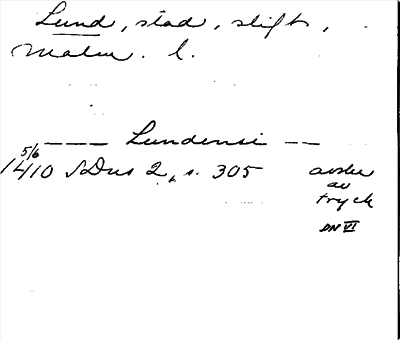 Lund, stad, stift,
Malm. l.
--- Lundensi --
5/6
1410 SDns 2, s. 305
avskr
av
tryck
DN VI